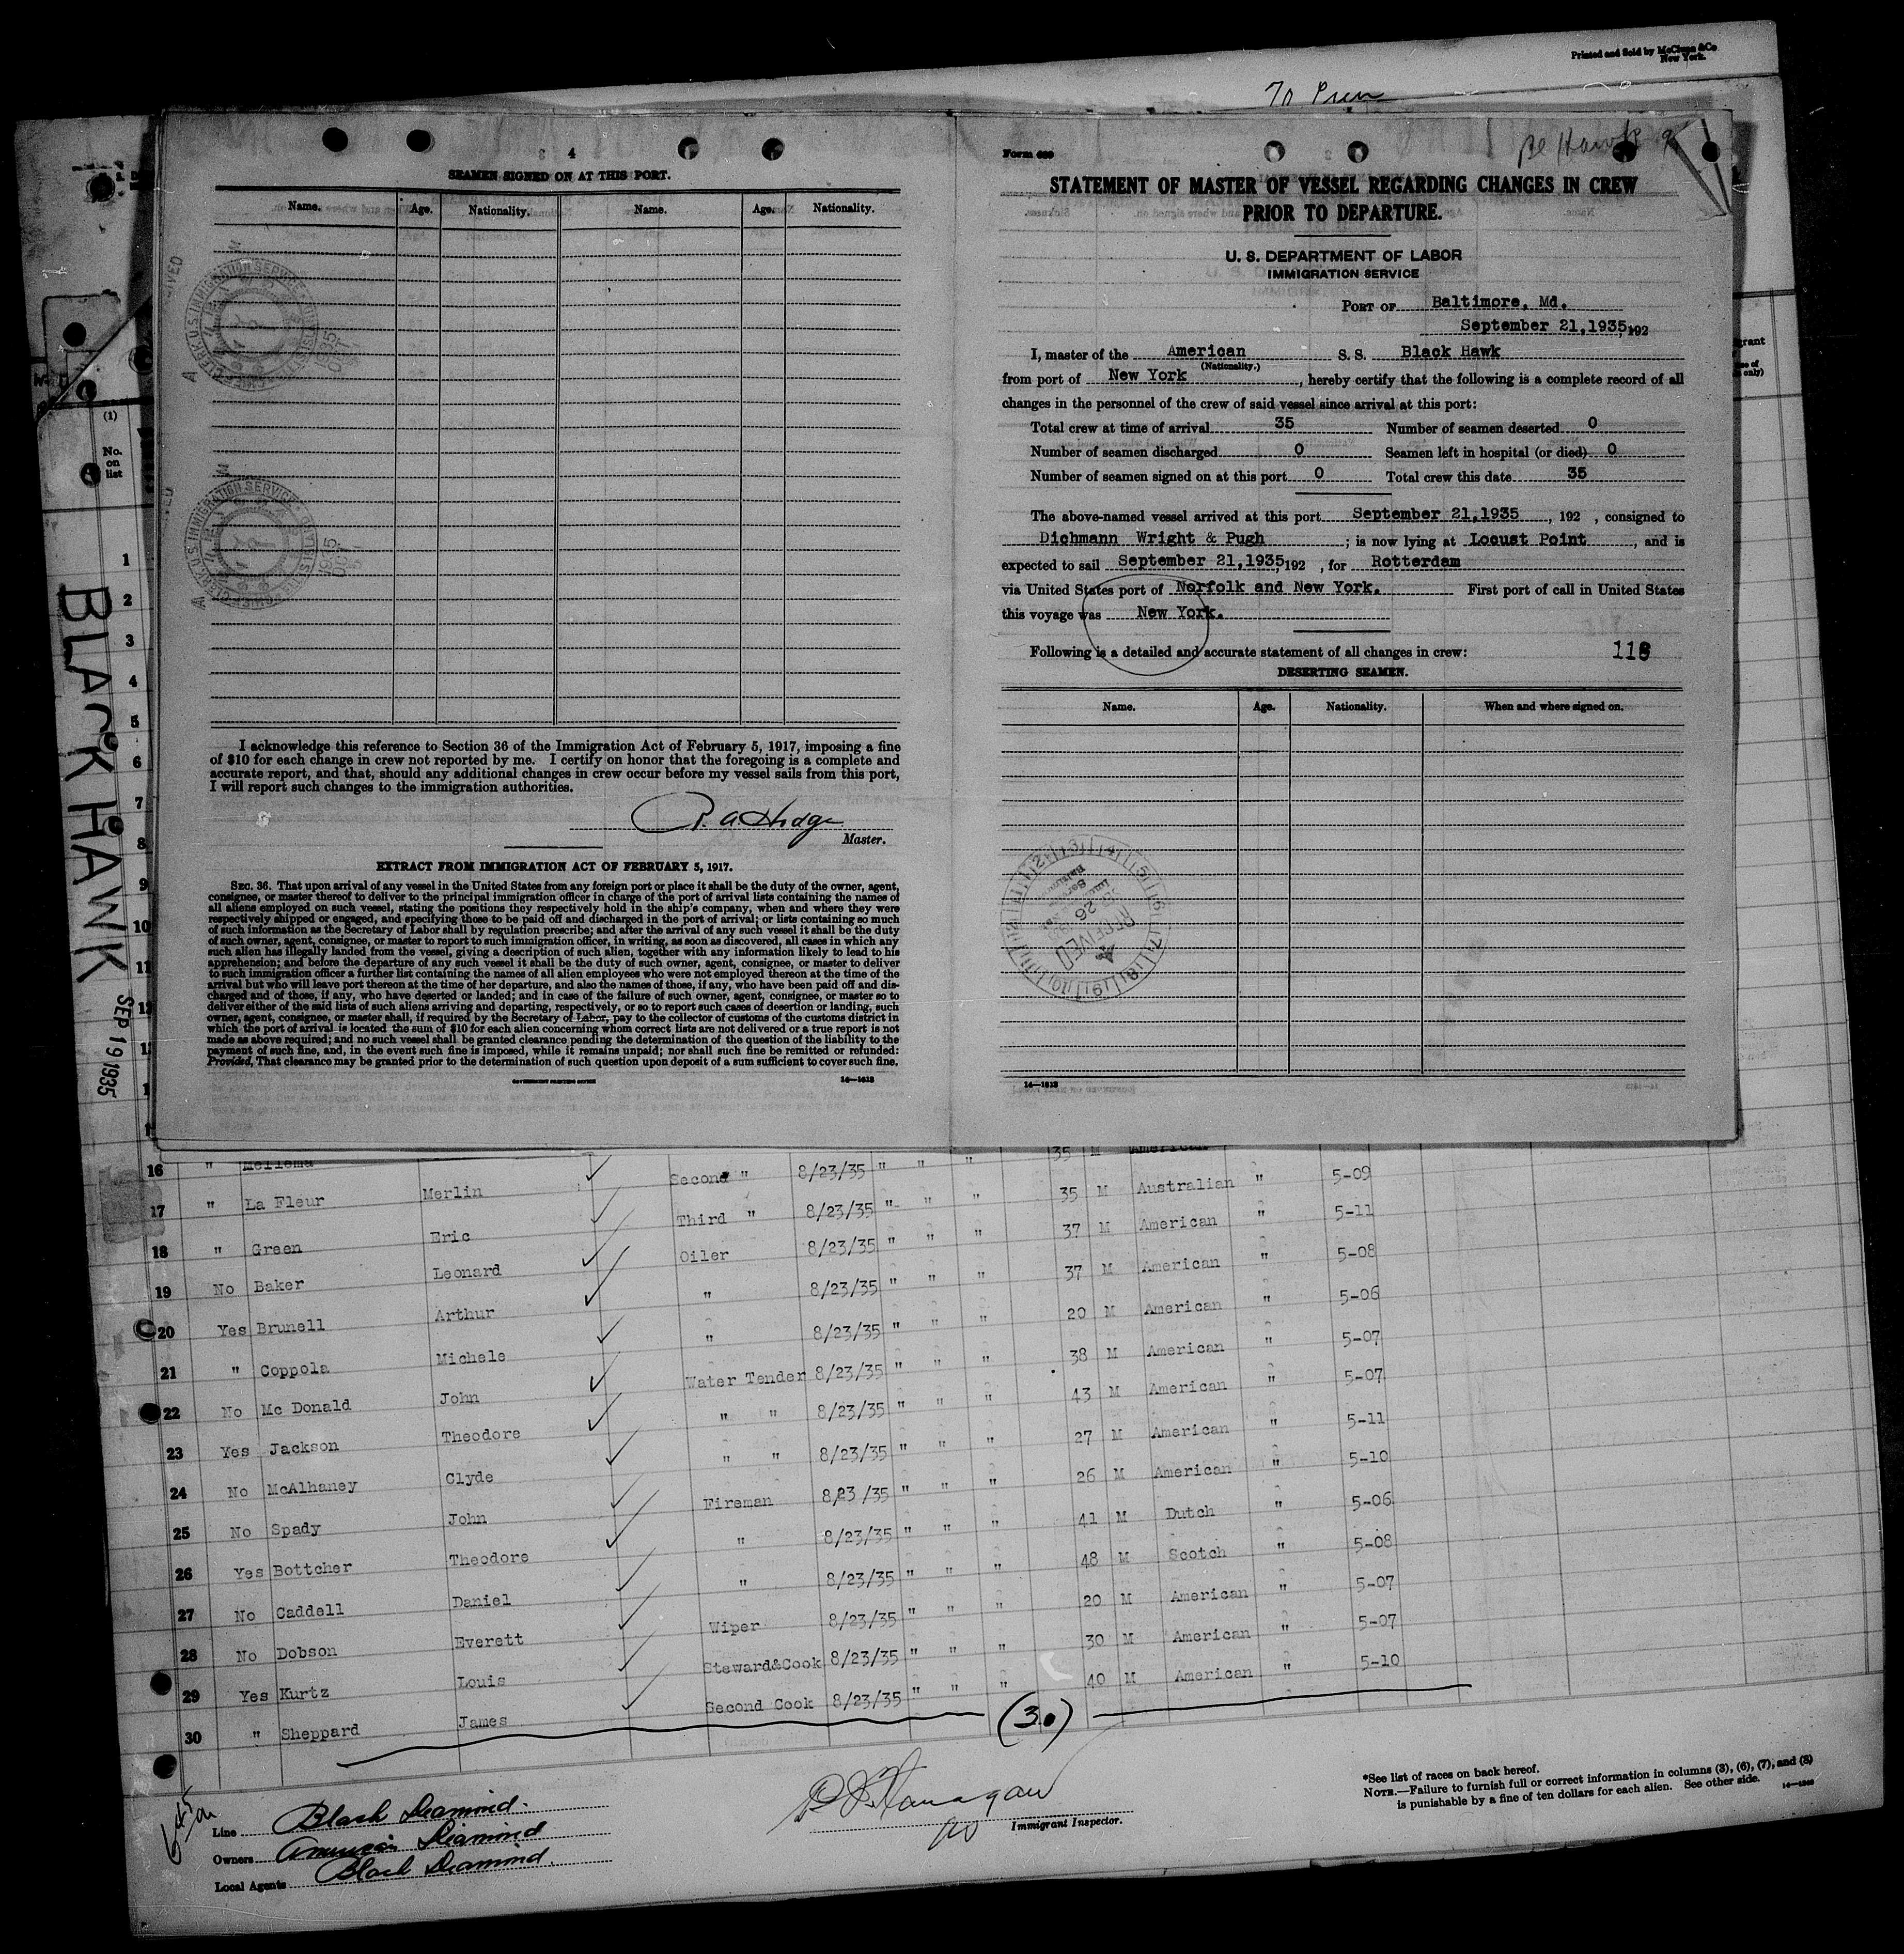 Printed and Sold by McClunn & Co
New York.
4
SEAMEN SIGNED ON AT THIS PORT.
Name. Age. Nationality. Name. Age. Nationality.
I acknowledge this reference to Section 36 of the Immigration Act of February 5, 1917, imposing a fine
of $10 for each change in crew not reported by me. I certify on honor that the foregoing is a complete and
accurate report, and that, should any additional changes in crew occur before my vessel sails from this port,
I will report such changes to the immigration authorities.
R. A. Hodge
Master.
EXTRACT FROM IMMIGRATION ACT OF FEBRUARY 5, 1917.
SEC. 36. That upon arrival of any vessel in the United States from any foreign port or place it shall be the duty of the owner, agent,
consignee, or master thereof to deliver to the principal immigration officer in charge of the port of arrival lists containing the names of
all aliens employed on such vessel, stating the positions they respectively hold in the ship's company, when and where they were
respectively shipped or engaged, and specifying those to be paid off and discharged in the port of arrival; or lists containing so much
of such information as the Secretary of Labor shall by regulation prescribe; and after the arrival of any such vessel it shall be the duty
of such owner, agent, consignee, or master to report to such immigration officer, in writing, as soon as discovered, all cases in which any
such alien has illegally landed from the vessel, giving a description of such alien, together with any information likely to lead to his
apprehension; and before the departure of any such vessel it shall be the duty of such owner, agent, consignee, or master to deliver
to such immigration officer a further list containing the names of all alien employees who were not employed thereon at the time of the
arrival but who will leave port thereon at the time of her departure, and also the names of those, if any, who have been paid off and dis-
charged and of those, if any, who have deserted or landed; and in case of the failure of such owner, agent, consignee, or master so to
deliver either of the said lists of such aliens arriving and departing, respectively, or so to report such cases of desertion or landing, such
owner, agent, consignee, or master shall, if required by the Secretary of Labor, pay to the collector of customs of the customs district in
which the port of arrival is located the sum of $10 for each alien concerning whom correct lists are not delivered or a true report is not
made as above required; and no such vessel shall be granted clearance pending the determination of the question of the liability to the
payment of such fine, and, in the event such fine is imposed, while it remains unpaid; nor shall such fine be remitted or refunded:
Provided, That clearance may be granted prior to the determination of such question upon deposit of a sum sufficient to cover such fine.
GOVERNMENT PRINTING OFFICE 14—1613
Form 689
STATEMENT OF MASTER OF VESSEL REGARDING CHANGES IN CREW
PRIOR TO DEPARTURE.
U. S. DEPARTMENT OF LABOR
IMMIGRATION SERVICE
PORT OF Baltimore, Md.
September 21,1935, 192
I, master of the American S. S. Black Hawk
(Nationality.)
from port of New York , hereby certify that the following is a complete record of all
changes in the personnel of the crew of said vessel since arrival at this port:
Total crew at time of arrival 35 Number of seamen deserted 0
Number of seamen discharged 0 Seamen left in hospital (or died) 0
Number of seamen signed on at this port 0 Total crew this date 35
The above-named vessel arrived at this port September 21,1935 , 192 , consigned to
Dichmann Wright & Pugh ; is now lying at Locust Point , and is
expected to sail September 21,1935, 192 , for Rotterdam
via United States port of Norfolk and New York. First port of call in United States
this voyage was New York.
Following is a detailed and accurate statement of all changes in crew: 118
DESERTING SEAMEN.
Name. Age. Nationality. When and where signed on.
RECEIVED
26
14—1613
(1)
No.
on
list
1
2
3
4
5
6
7
8
9
10
11
BLACK HAWK
SEP 19 1935
16 " Mellema
17 " La Fleur Merlin Second " 8/23/35 " " " 35 M American
18 " Green Eric Third " 8/23/35 " " " 35 M Australian " 5-09
19 No Baker Leonard Oiler 8/23/35 " " " 37 M American " 5-11
20 Yes Brunell Arthur " 8/23/35 " " " 37 M American " 5-08
21 " Coppola Michele " 8/23/35 " " " 20 M American " 5-06
22 No Mc Donald John Water Tender 8/23/35 " " " 38 M American " 5-07
23 Yes Jackson Theodore " " 8/23/35 " " " 43 M American " 5-07
24 No McAlhaney Clyde " " 8/23/35 " " " 27 M American " 5-11
25 No Spady John Fireman 8/23/35 " " " 26 M American " 5-10
26 Yes Bottcher Theodore " 8/23/35 " " " 41 M Dutch " 5-06
27 No Caddell Daniel " 8/23/35 " " " 48 M Scotch " 5-08
28 No Dobson Everett Wiper 8/23/35 " " " 20 M American " 5-07
29 Yes Kurtz Louis Steward&Cook 8/23/35 " " " 30 M American " 5-07
30 " Sheppard James Second Cook 8/23/35 " " " 40 M American " 5-10
(30)
Line Black Diamond.
Owners American Diamond
Local Agents Black Diamond.
Immigrant Inspector.
*See list of races on back hereof.
NOTE.—Failure to furnish full or correct information in columns (3), (6), (7), and (8)
is punishable by a fine of ten dollars for each alien. See other side. 14—1240